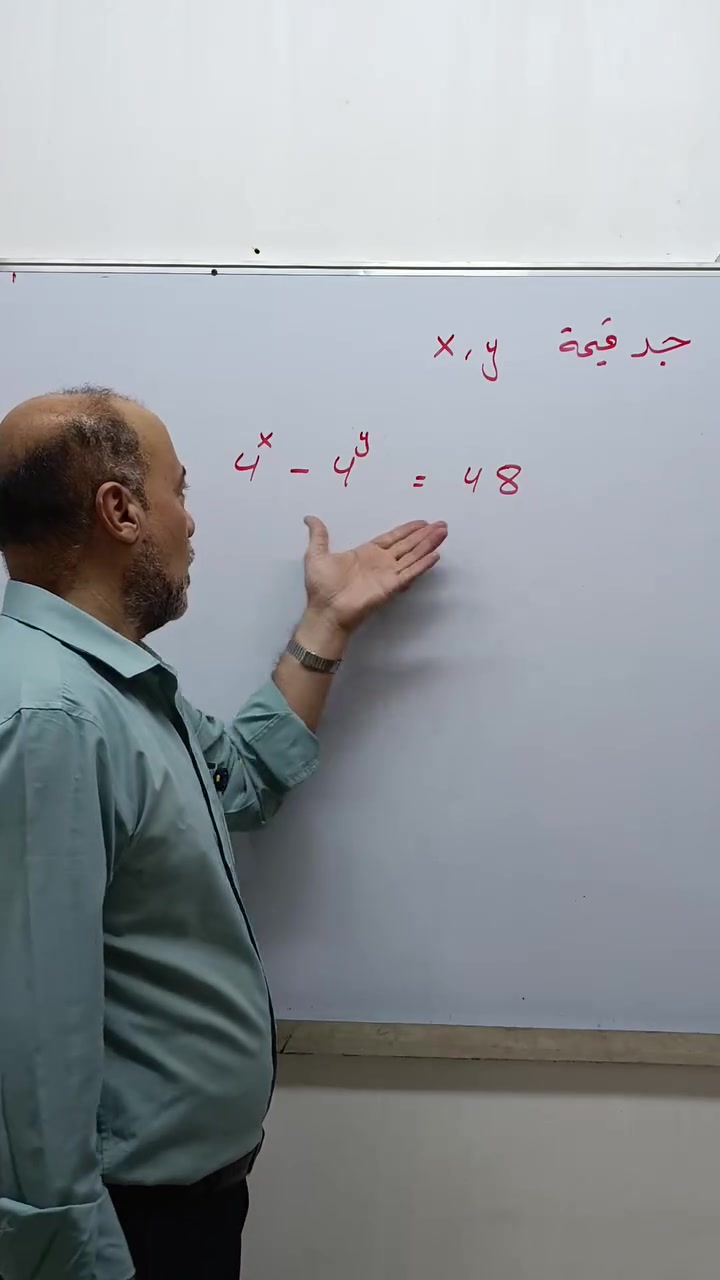 جد قيمة x, y
4^x - 4^y = 48